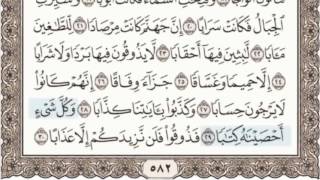 ٱلْجِبَالُ فَكَانَتْ سَرَابًا ٢٠ إِنَّ جَهَنَّمَ كَانَتْ مِرْصَادًا ٢١ لِّلطَّٰغِينَ
مَـَٔابًا ٢٢ لَّٰبِثِينَ فِيهَآ أَحْقَابًا ٢٣ لَّا يَذُوقُونَ فِيهَا بَرْدًا وَلَا شَرَابًا
٢٤ إِلَّا حَمِيمًا وَغَسَّاقًا ٢٥ جَزَآءً وِفَاقًا ٢٦ إِنَّهُمْ كَانُوا۟
لَا يَرْجُونَ حِسَابًا ٢٧ وَكَذَّبُوا۟ بِـَٔايَٰتِنَا كِذَّابًا ٢٨ وَكُلَّ شَىْءٍ
أَحْصَيْنَٰهُ كِتَٰبًا ٢٩ فَذُوقُوا۟ فَلَن نَّزِيدَكُمْ إِلَّا عَذَابًا ٣٠
٥٨٢